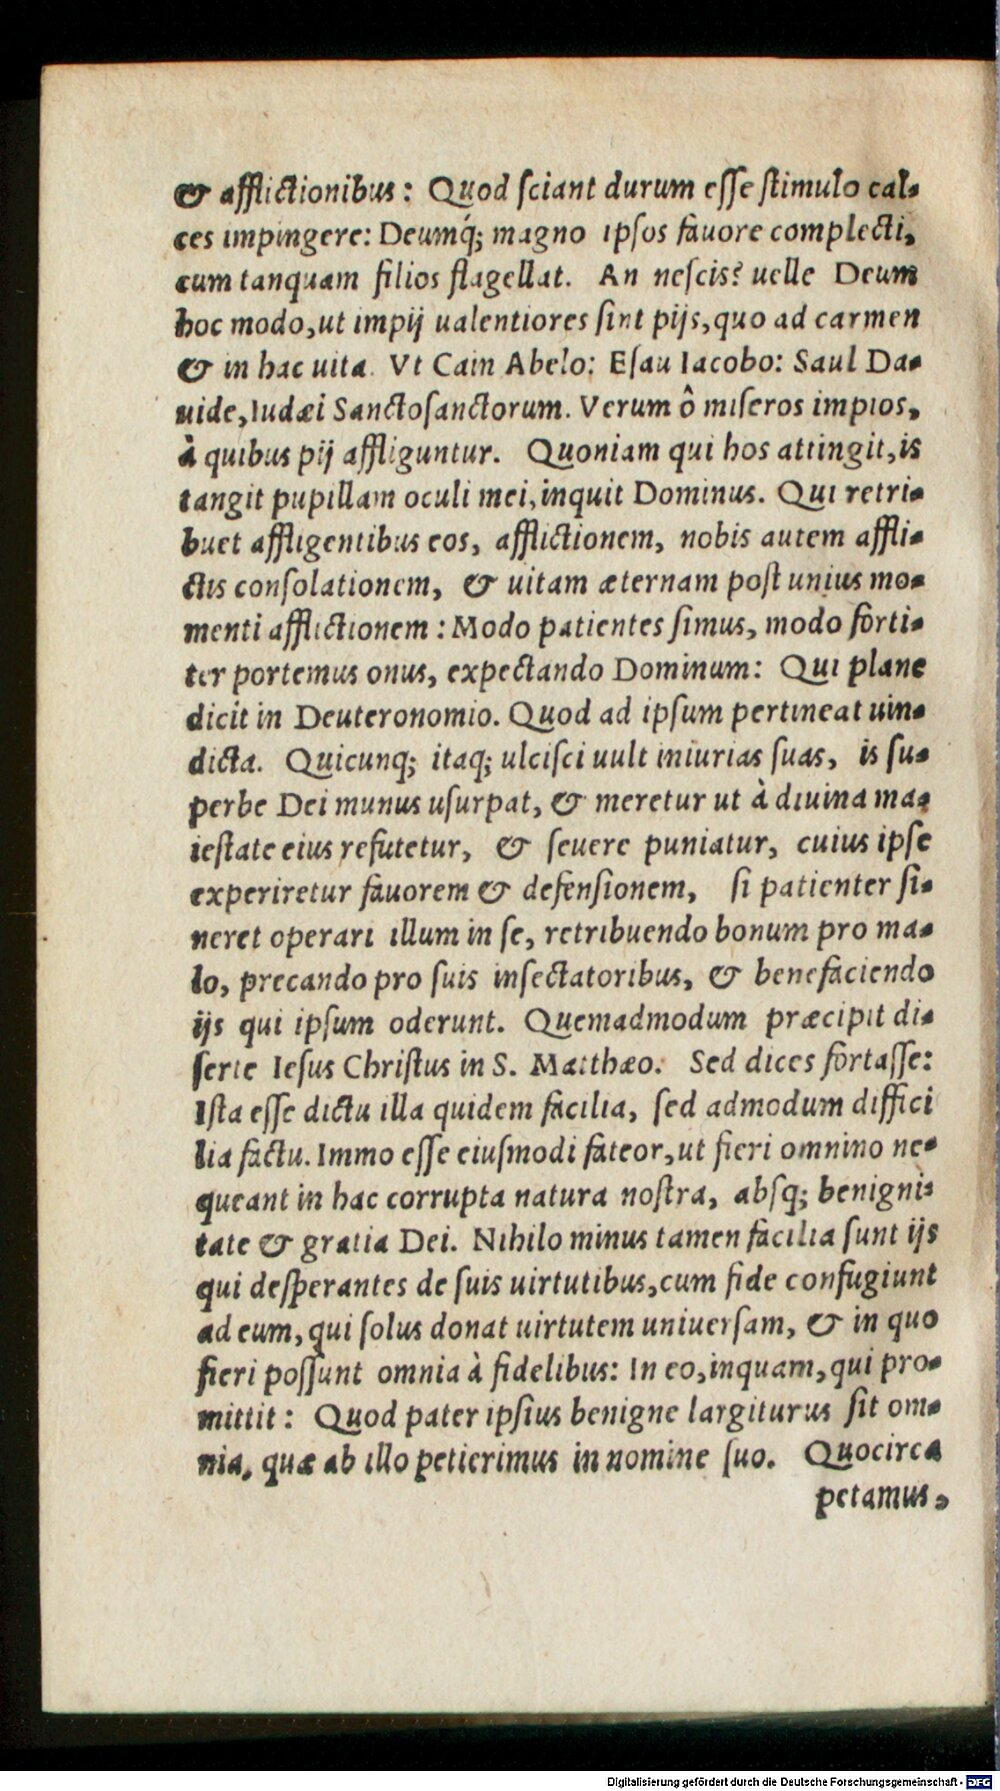 & afflictionibus: Quod ſciant durum eſſe ſtimulo cal-
ces impingere: Deumq́; magno ipſos fauore complecti,
cum tanquam filios flagellat. An neſcis? uelle Deum
hoc modo, ut impij ualentiores ſint pijs, quo ad carmen
& in hac uita. Vt Cain Abelo: Eſau Iacobo: Saul Da-
uide, Iudæi Sanctoſanctorum. Verum ô miſeros impios,
à quibus pij affliguntur. Quoniam qui hos attingit, is
tangit pupillam oculi mei, inquit Dominus. Qui retri-
buet affligentibus eos, afflictionem, nobis autem affli-
ctis conſolationem, & uitam æternam poſt unius mo-
menti afflictionem: Modo patientes ſimus, modo forti-
ter portemus onus, expectando Dominum: Qui plane
dicit in Deuteronomio. Quod ad ipſum pertineat uin-
dicta. Quicunq; itaq; ulciſci uult iniurias ſuas, is ſu-
perbe Dei munus uſurpat, & meretur ut à diuina ma-
ieſtate eius refutetur, & ſeuere puniatur, cuius ipſe
experiretur fauorem & defenſionem, ſi patienter ſi-
neret operari illum in ſe, retribuendo bonum pro ma-
lo, precando pro ſuis inſectatoribus, & benefaciendo
ijs qui ipſum oderunt. Quemadmodum præcipit di-
ſerte Ieſus Chriſtus in S. Matthæo. Sed dices fortaſſe:
Iſta eſſe dictu illa quidem facilia, ſed admodum diffici
lia factu. Immo eſſe eiuſmodi fateor, ut fieri omnino ne-
queant in hac corrupta natura noſtra, abſq; benigni-
tate & gratia Dei. Nihilo minus tamen facilia ſunt ijs
qui deſperantes de ſuis uirtutibus, cum fide confugiunt
ad eum, qui ſolus donat uirtutem uniuerſam, & in quo
fieri poſſunt omnia à fidelibus: In eo, inquam, qui pro-
mittit: Quod pater ipſius benigne largiturus ſit om-
nia, quæ ab illo petierimus in nomine ſuo. Quocirca
petamus,
Digitalisierung gefördert durch die Deutsche Forschungsgemeinschaft - DFG